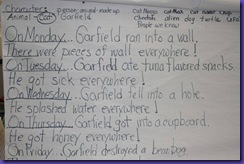 Characters: person, animal, made up
Animal- Cat Garfield
On Monday... Garfield ran into a wall.
There were pieces of wall everywhere!
On Tuesday... Garfield ate tuna flavored snacks.
He got sick everywhere!
On Wednesday... Garfield fell into a hole.
He splashed water everywhere!
On Thursday... Garfield got into a cupboard.
He got honey everywhere!
On Friday... Garfield destroyed a bean bag.